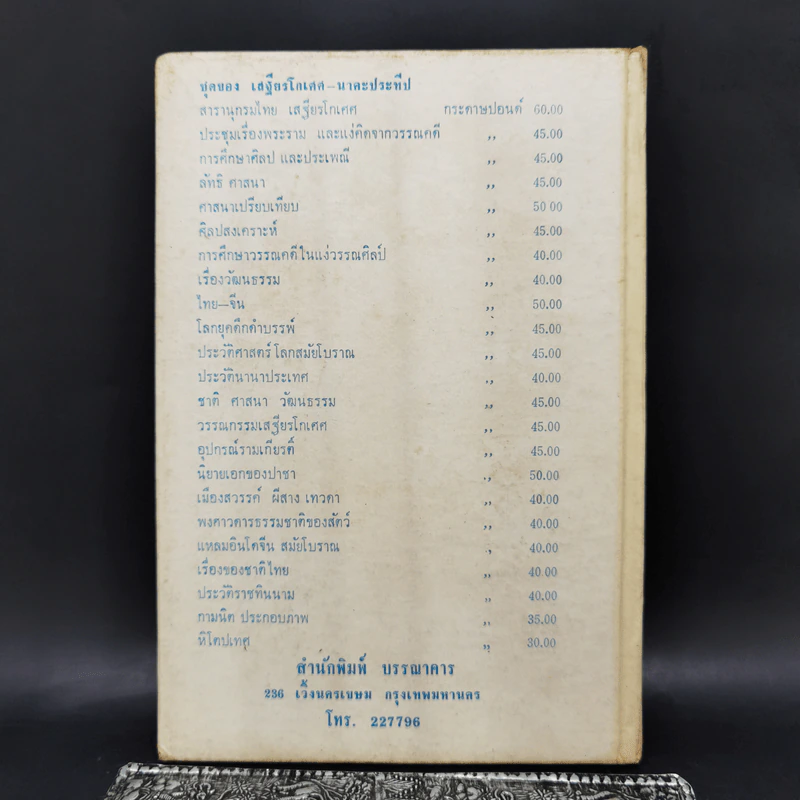 ชุดของ เสฐียรโกเศศ–นาคะประทีป
สารานุกรมไทย เสฐียรโกเศศ กระดาษปอนด์ 60.00
ประชุมเรื่องพระราม และแง่คิดจากวรรณคดี ,, 45.00
การศึกษาศิลป และประเพณี ,, 45.00
ลัทธิ ศาสนา ,, 45.00
ศาสนาเปรียบเทียบ ,, 50 00
ศิลปสงเคราะห์ ,, 45.00
การศึกษาวรรณคดีในแง่วรรณศิลป์ ,, 40.00
เรื่องวัฒนธรรม ,, 40.00
ไทย—จีน ,, 50.00
โลกยุคดึกดำบรรพ์ ,, 45.00
ประวัติศาสตร์โลกสมัยโบราณ ,, 45.00
ประวัตินานาประเทศ ,, 40.00
ชาติ ศาสนา วัฒนธรรม ,, 45.00
วรรณกรรมเสฐียรโกเศศ ,, 45.00
อุปกรณ์รามเกียรติ์ ,, 45.00
นิยายเอกของปาชา ,, 50.00
เมืองสวรรค์ ผีสาง เทวดา ,, 40.00
พงศาวดารธรรมชาติของสัตว์ ,, 40.00
แหลมอินโดจีน สมัยโบราณ ,, 40.00
เรื่องของชาติไทย ,, 40.00
ประวัติราชทินนาม ,, 40.00
กามนิต ประกอบภาพ ,, 35.00
หิโตปเทศ ,, 30.00
สำนักพิมพ์ บรรณาคาร
236 เวิ้งนครเขษม กรุงเทพมหานคร
โทร. 227796